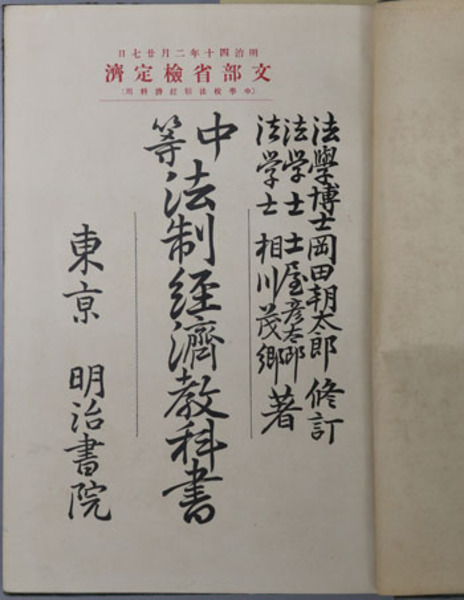 明治四十年二月廿七日
文部省檢定濟
法學博士岡田朝太郎 修訂
法学士 土屋彦太郎
法学士 相川茂郷 著
中等 法制経濟教科書
東京 明治書院